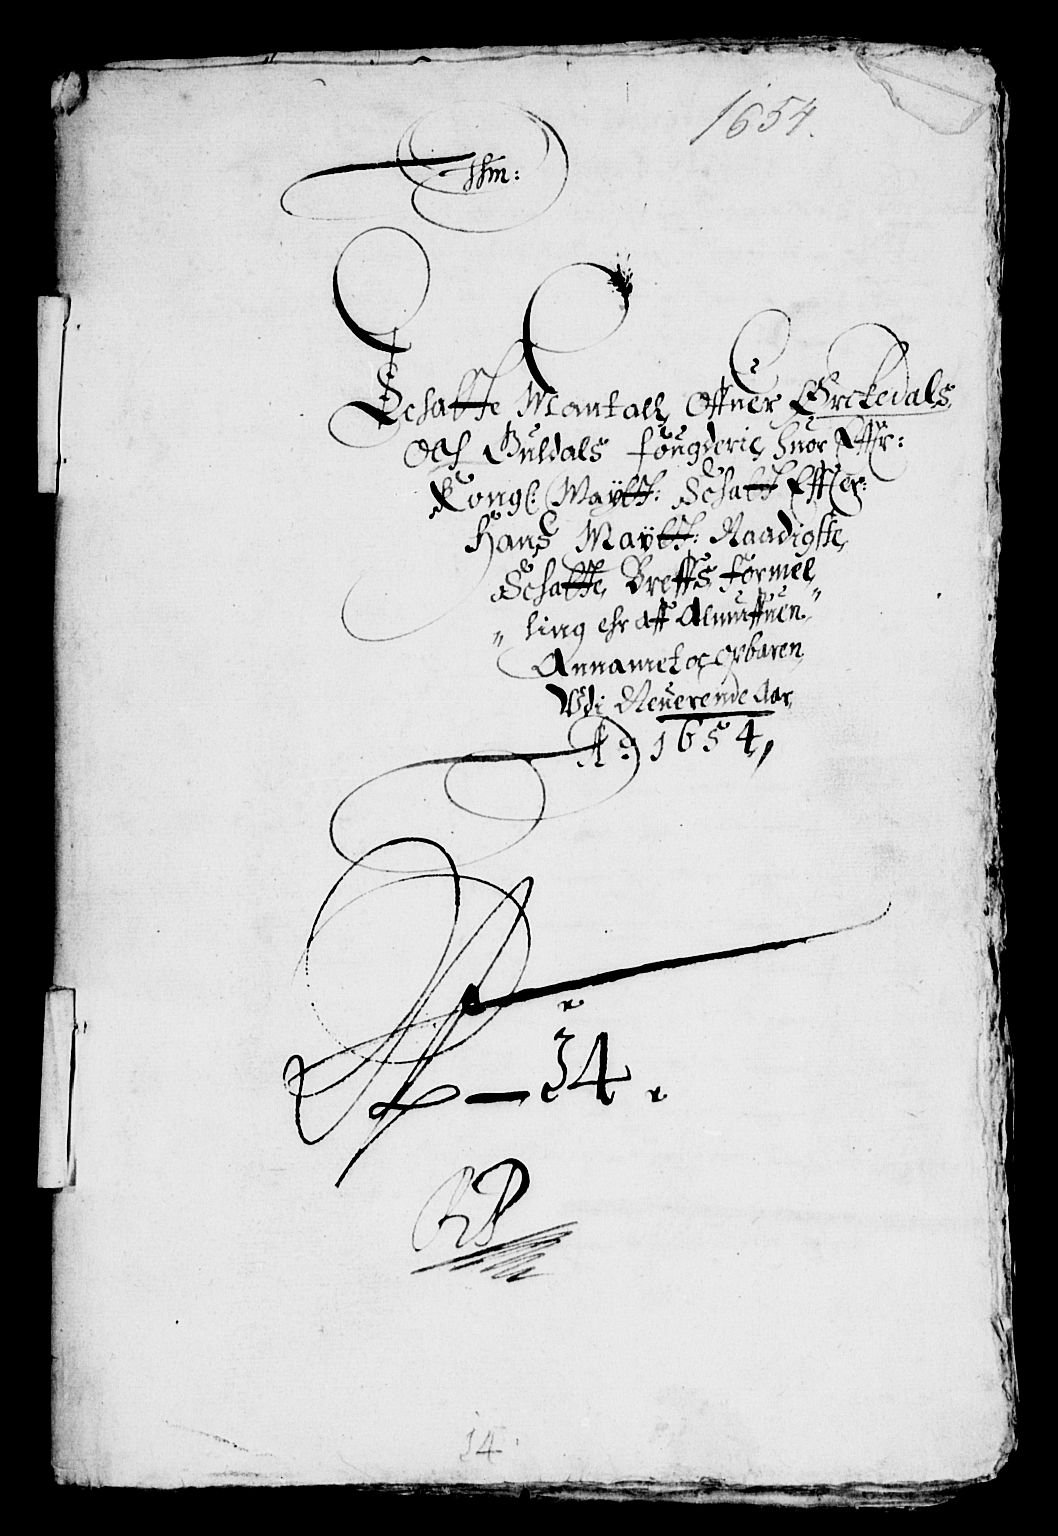 1654.
Schatte Mantall Offuer Örckedals
och Guldals fougderie, huor Effter:
Kongl: Maytt: Schatt Effter
Hans Maytt: Naadigste
Schatte Breffs formel
ling ehr aff Almuffuen
Annamet oc opbaren
Vdi Neuerende Aar
Ao 1654,
34
14